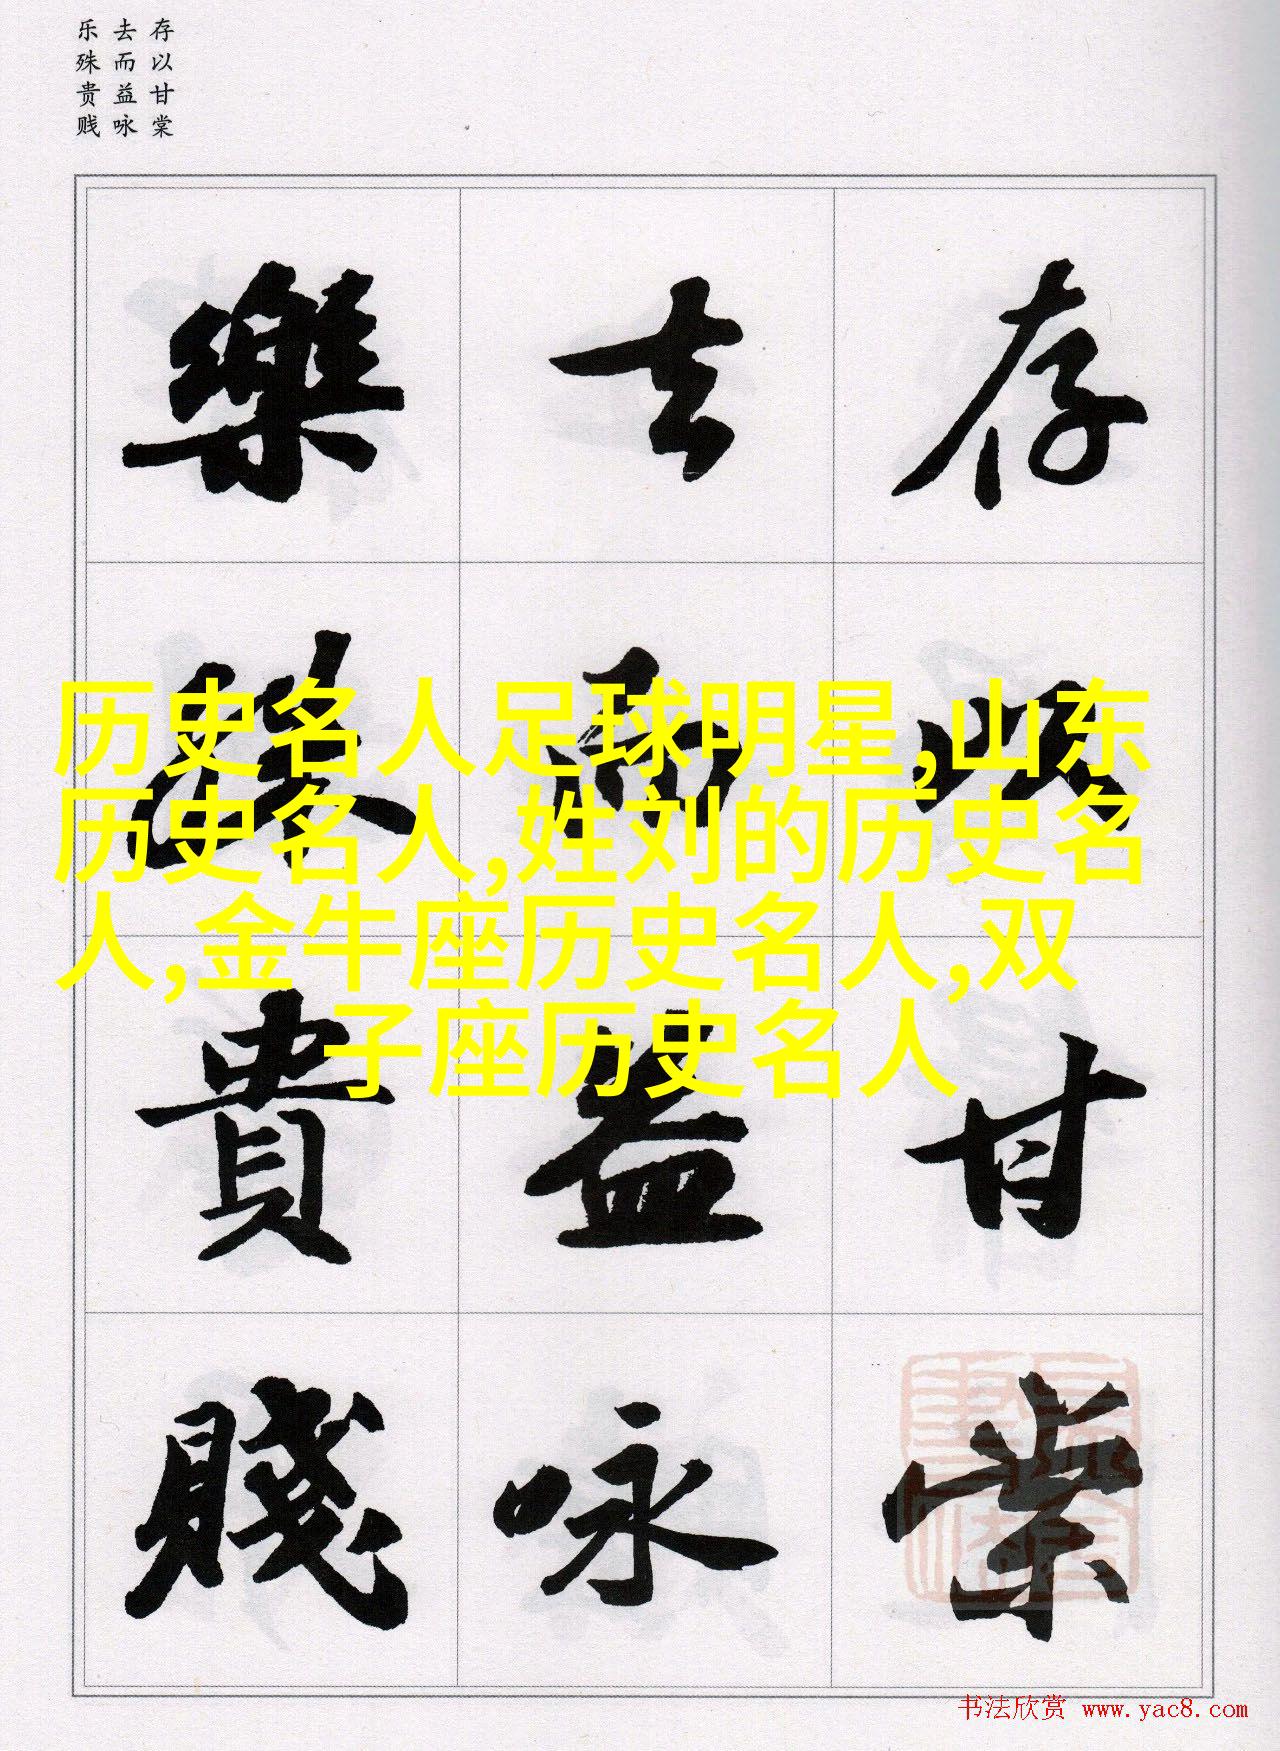 存以甘棠
去而益咏
乐殊贵贱
存以甘棠
去而益咏
樂殊貴賤
历史名人足球明星,山东
历史名人,姓刘的历史名
人,金牛座历史名人,双
子座历史名人
书法欣赏 www.yac8.com